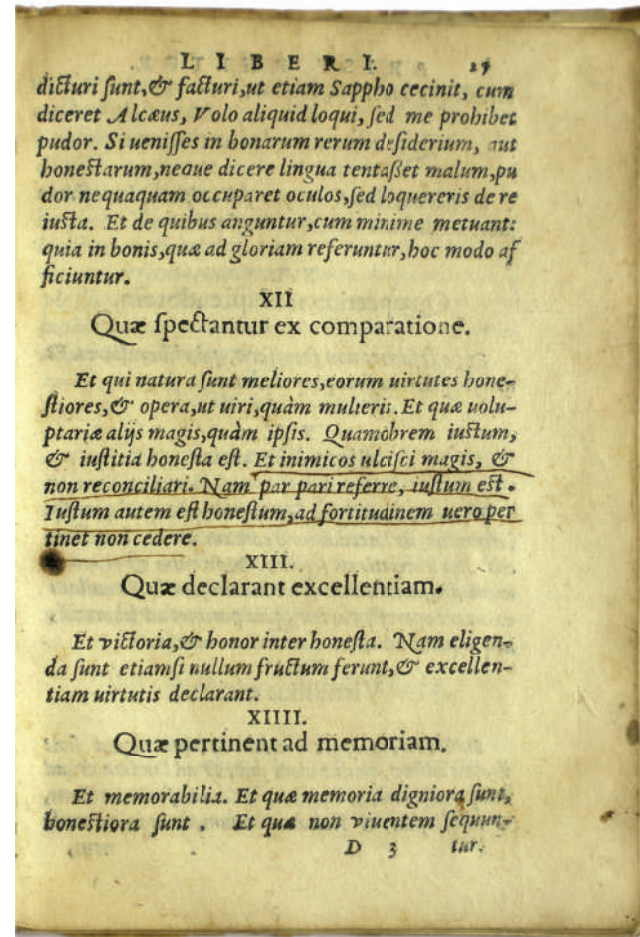 LIBER I. 27
dicturi sunt, & facturi, ut etiam Sappho cecinit, cum
diceret Alcæus, Volo aliquid loqui, sed me prohibet
pudor. Si uenisses in bonarum rerum desiderium, aut
honestarum, neque dicere lingua tentasset malum, pu
dor nequaquam occuparet oculos, sed loquereris de re
iusta. Et de quibus anguntur, cum minime metuant:
quia in bonis, quæ ad gloriam referuntur, hoc modo af
ficiuntur.
XII
Quæ spectantur ex comparatione.
Et qui natura sunt meliores, eorum uirtutes hone-
stiores, & opera, ut uiri, quàm mulieris. Et quæ uolu-
ptariæ alijs magis, quàm ipsis. Quamobrem iustum,
& iustitia honesta est. Et inimicos ulcisci magis, &
non reconciliari. Nam par pari referre, iustum est.
Iustum autem est honestum, ad fortitudinem uero per
tinet non cedere.
XIII.
Quæ declarant excellentiam.
Et victoria, & honor inter honesta. Nam eligen-
da sunt etiamsi nullum fructum ferunt, & excellen-
tiam uirtutis declarant.
XIIII.
Quæ pertinent ad memoriam.
Et memorabilia. Et quæ memoria digniora sunt,
honestiora sunt. Et quæ non viuentem sequun-
D 3 tur.